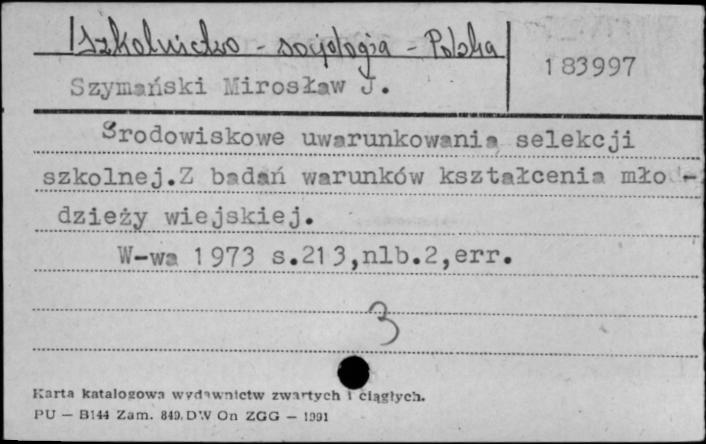 Szkolnictwo - socjologia - Polska
183997
Szymański Mirosław J.
Środowiskowe uwarunkowania selekcji
szkolnej.Z badań warunków kształcenia mło-
dzieży wiejskiej.
W-wa 1973 s.213,nlb.2,err.
3
Karta katalogowa wydawnictw zwartych i ciągłych.
PU — B144 Zam. 849. DW On ZGG — 1991